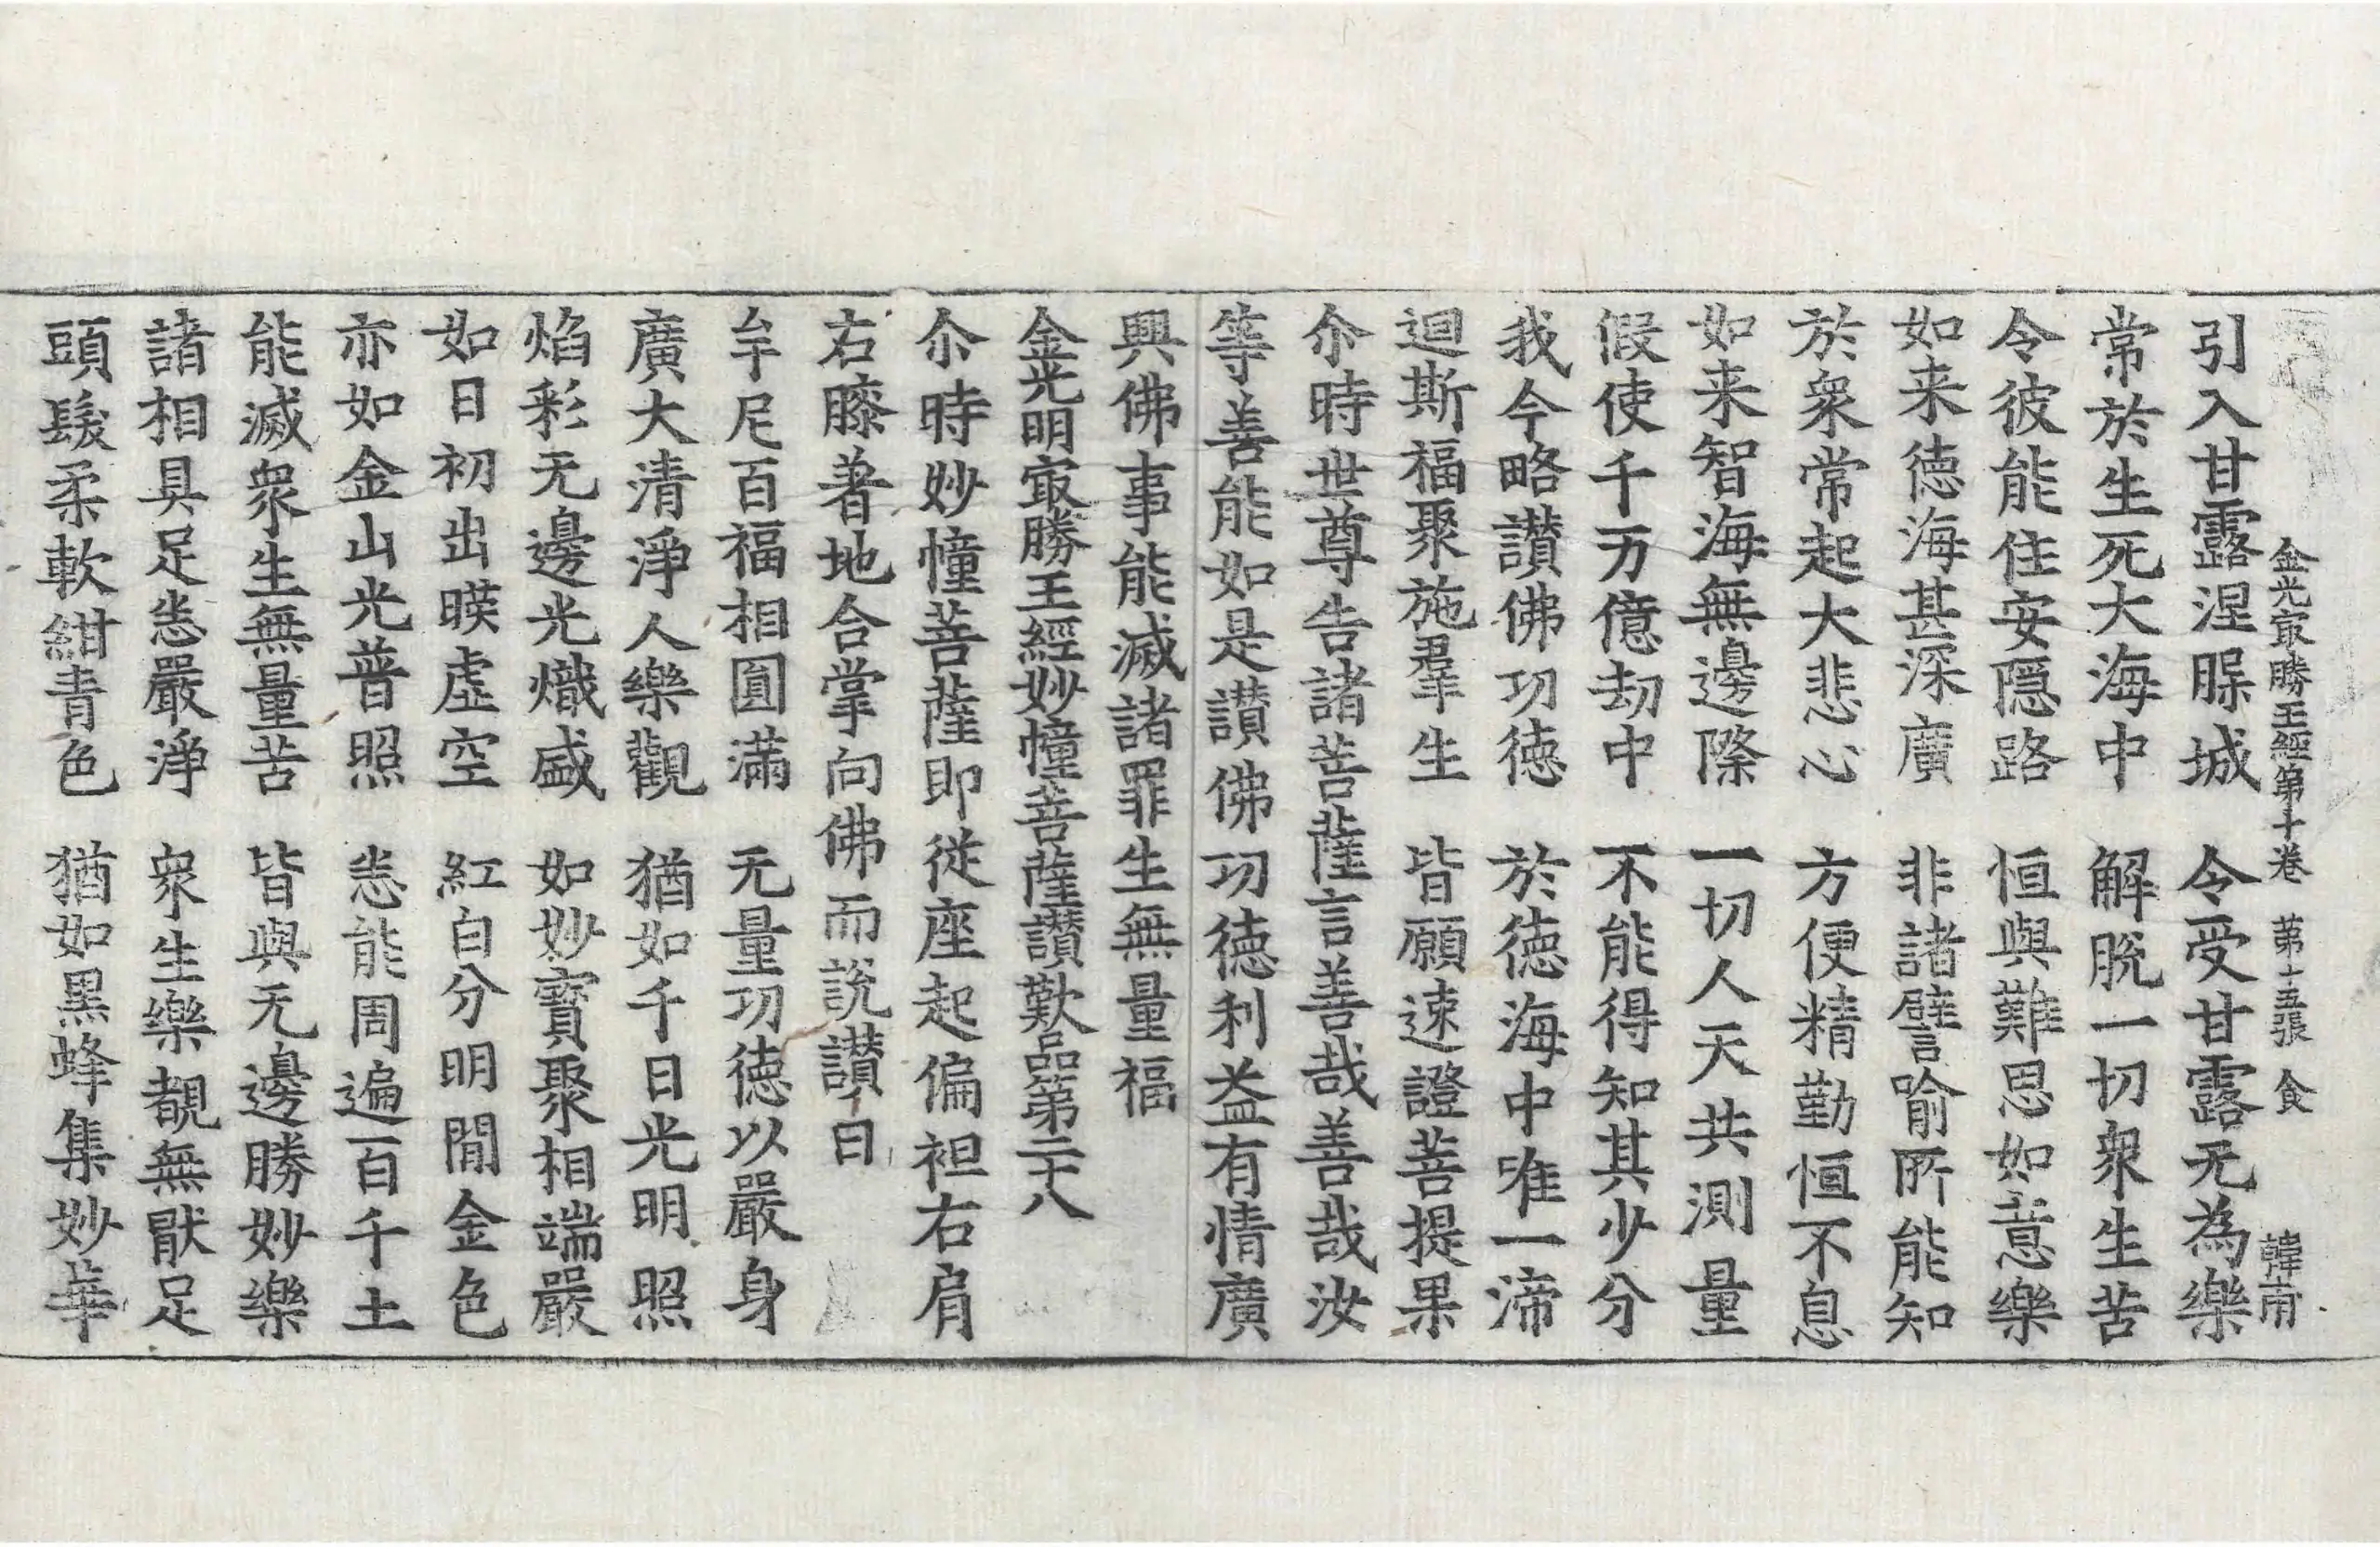 金光冣勝王經第十卷 第十五張 食 韓甫
引入甘露涅𣵀城 令受甘露无為樂
常於生死大海中 解脫一切衆生苦
令彼能住安隱路 恒與難思如意樂
如来德海甚深廣 非諸譬喻所能知
於衆常起大悲心 方便精勤恒不息
如来智海無邊際 一切人天共測量
假使千万億劫中 不能得知其少分
我今略讃佛功德 於德海中唯一渧
迴斯福聚施羣生 皆願速證菩提果
尒時世尊告諸菩薩言善哉善哉汝
等善能如是讃佛功德利益有情廣
興佛事能滅諸罪生無量福
金光明冣勝王經妙幢菩薩讃歎品第二十八
尒時妙幢菩薩即從座起偏袒右肩
右膝著地合掌向佛而說讃曰
牟尼百福相圓滿 无量功德以嚴身
廣大清淨人樂觀 猶如千日光明照
焰彩无邊光熾盛 如妙寶聚相端嚴
如日初出暎虛空 紅白分明閒金色
亦如金山光普照 悉能周遍百千土
能滅衆生無量苦 皆與无邊勝妙樂
諸相具足悉嚴淨 衆生樂覩無猒足
頭髮柔軟紺青色 猶如黑蜂集妙華